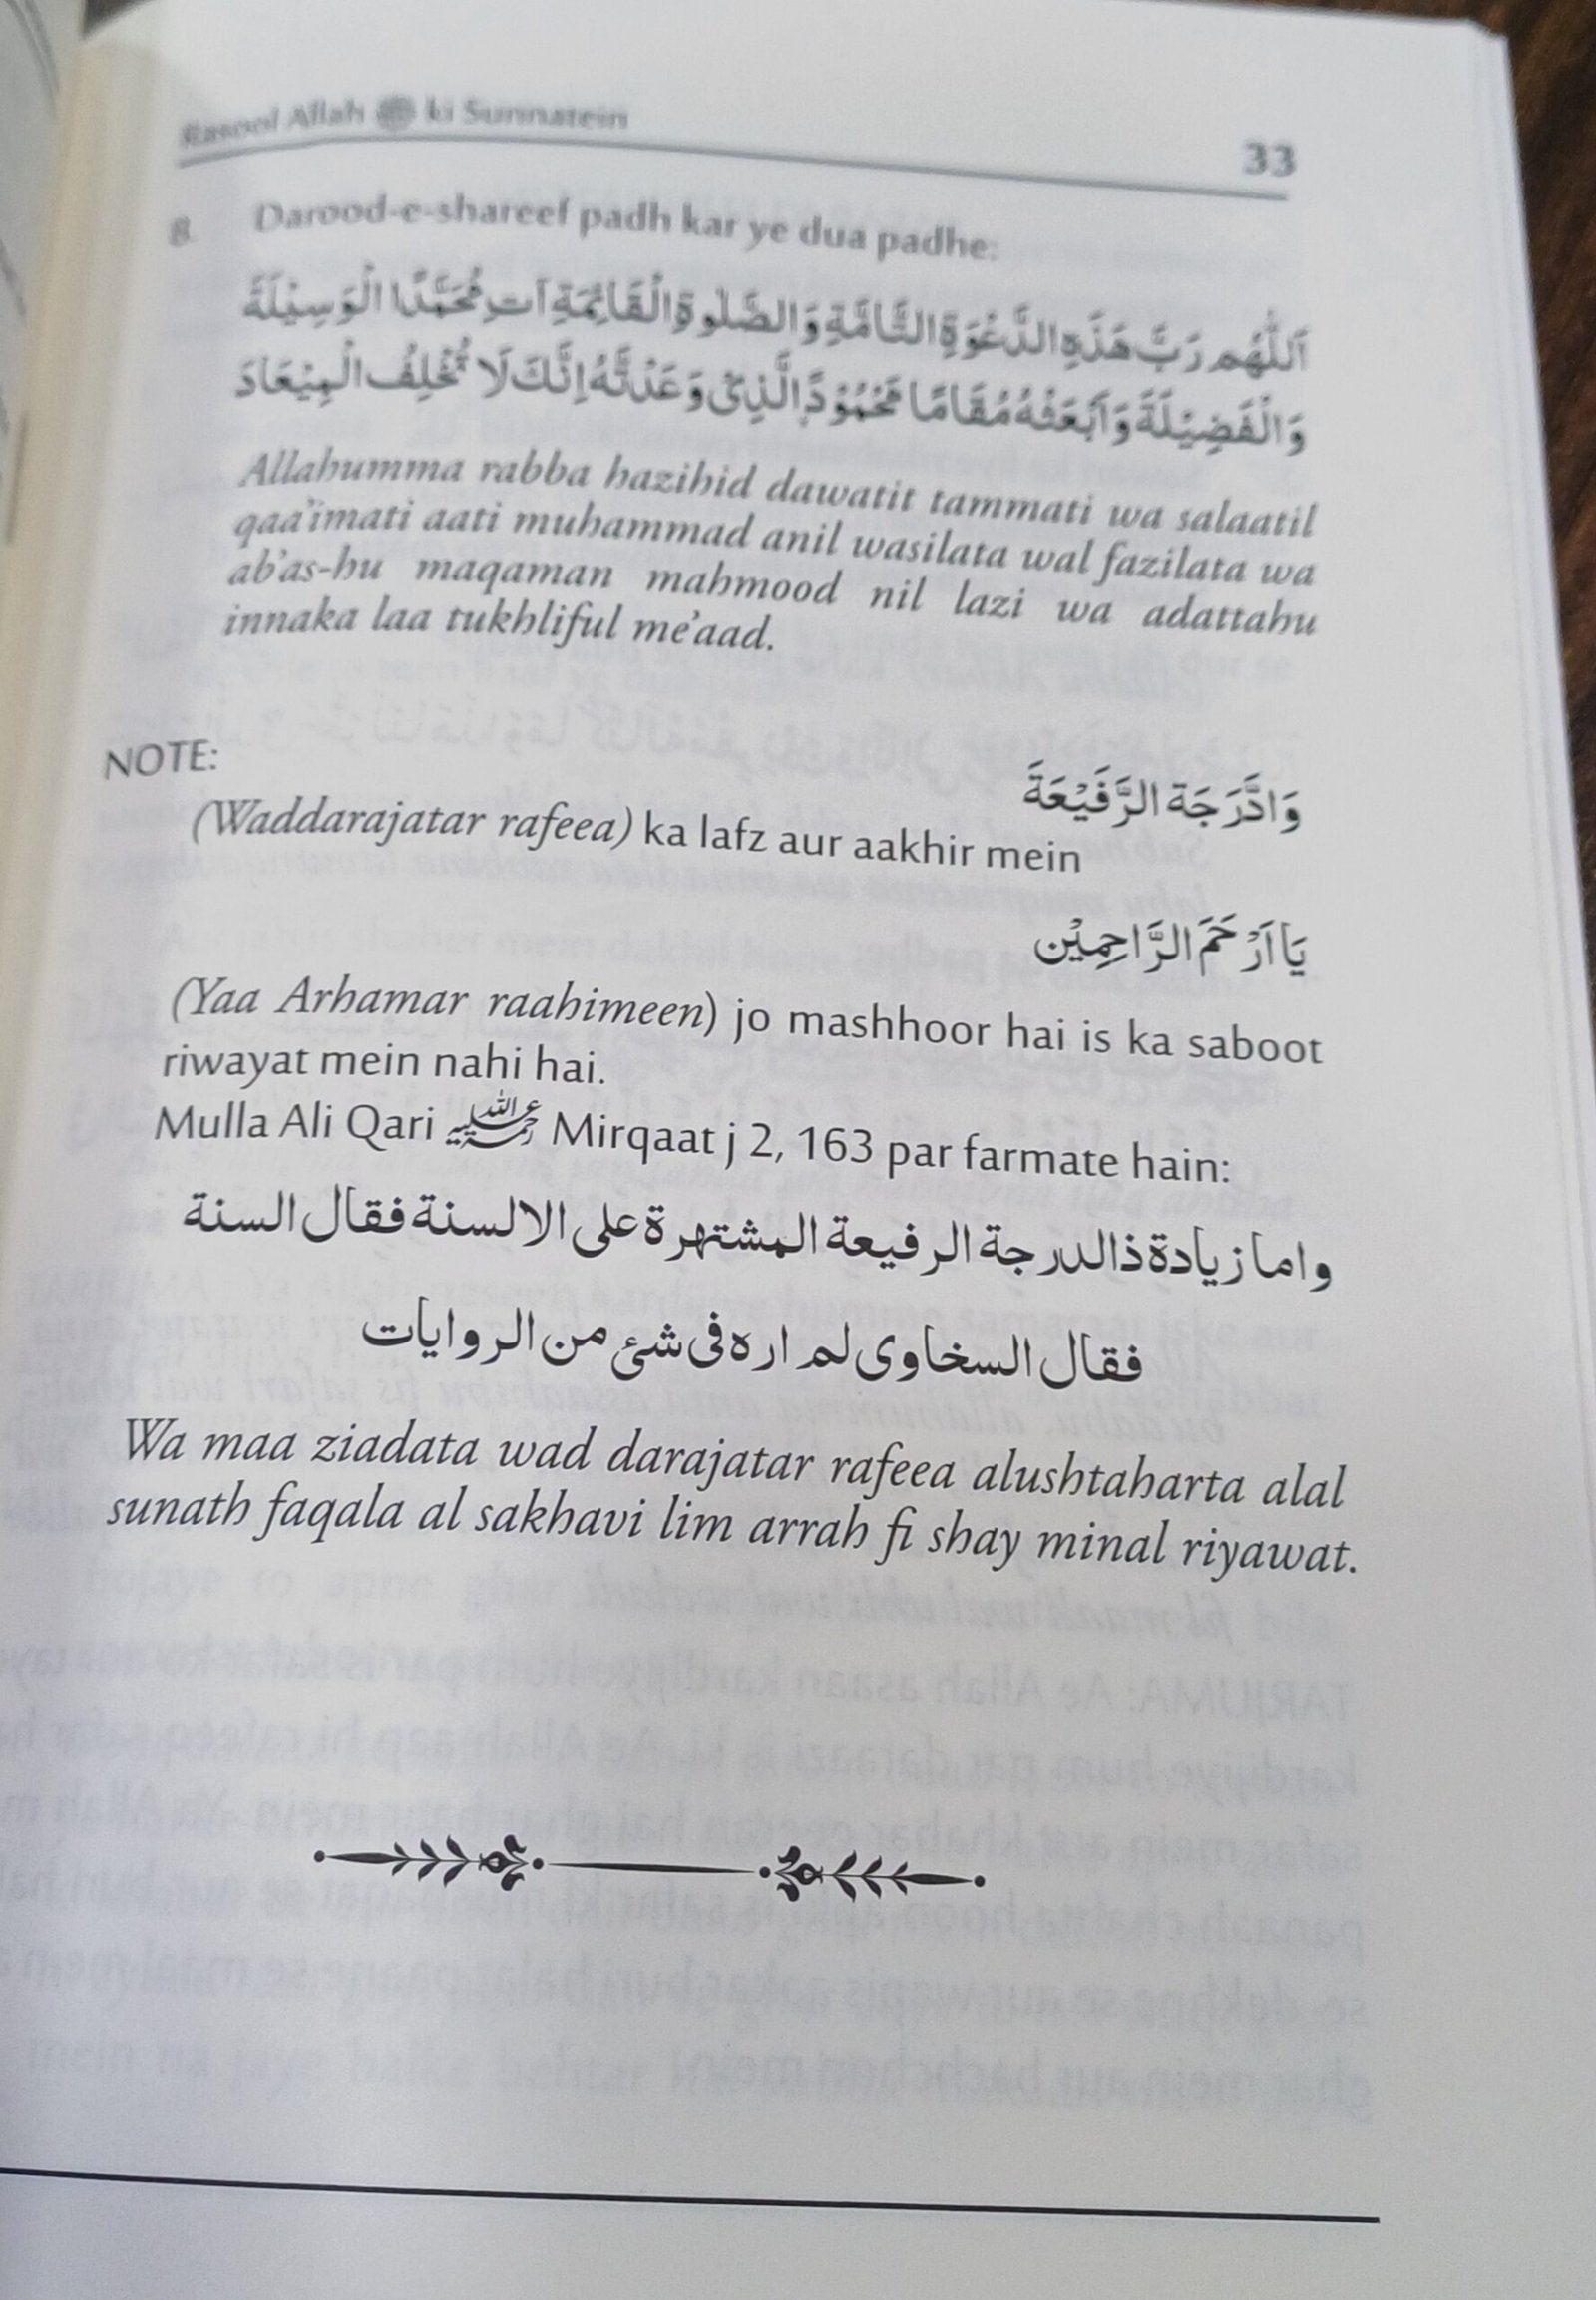 Rasool Allah ﷺ ki Sunnatein
33
8. Darood-e-shareef padh kar ye dua padhe:
اَللّٰهُم رَبَّ هَذَهِ الدَّعْوَةِ التَّامَّةِ وَالصَّلٰوةِ الْقَائِمَةِ اٰتِ مُحَمَّدًا الْوَسِيْلَةَ
وَالْفَضِيْلَةَ وَاَبْعَثْهُ مُقَامًا مَحْمُوْدًا الَّذِىْ وَعَدْتَّهُ اِنَّكَ لَا تُخْلِفُ الْمِيْعَادَ
Allahumma rabba hazihid dawatit tammati wa salaatil
qaa'imati aati muhammad anil wasilata wal fazilata wa
ab'as-hu maqaman mahmood nil lazi wa adattahu
innaka laa tukhliful me'aad.
NOTE:
وَادَّرَجَة الرَّفَيْعَةَ
(Waddarajatar rafeea) ka lafz aur aakhir mein
يَا اَرْحَمَ الرَّاحِمِيْن
(Yaa Arhamar raahimeen) jo mashhoor hai is ka saboot
riwayat mein nahi hai.
Mulla Ali Qari رحمة الله عليه Mirqaat j 2, 163 par farmate hain:
واما زيادة ذالدرجة الرفيعة المشتهرة على الالسنة فقال السنة
فقال السخاوى لم اره فى شئ من الروايات
Wa maa ziadata wad darajatar rafeea alushtaharta alal
sunath faqala al sakhavi lim arrah fi shay minal riyawat.